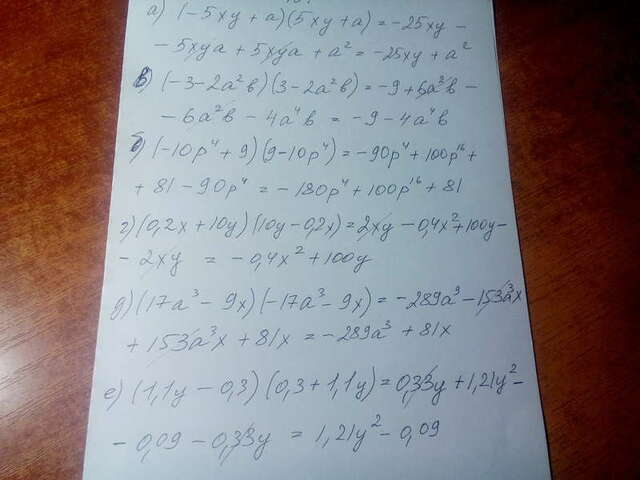 а) (-5xy + a)(5xy + a) = -25xy -
- 5xya + 5xya + a² = -25xy + a²
в) (-3-2a²в)(3-2a²в) = -9 + 6a²в -
- 6a²в - 4a⁴в = -9 - 4a⁴в
б) (-10p⁴ + 9)(9-10p⁴) = -90p⁴ + 100p¹⁶ +
+ 81 - 90p⁴ = -180p⁴ + 100p¹⁶ + 81
г) (0,2x + 10y)(10y - 0,2x) = 2xy - 0,4x² + 100y -
- 2xy = -0,4x² + 100y
д) (17a³ - 9x)(-17a³ - 9x) = -289a⁹ - 153a³x
+ 153a³x + 81x = -289a³ + 81x
е) (1,1y - 0,3)(0,3 + 1,1y) = 0,33y + 1,21y² -
- 0,09 - 0,33y = 1,21y² - 0,09